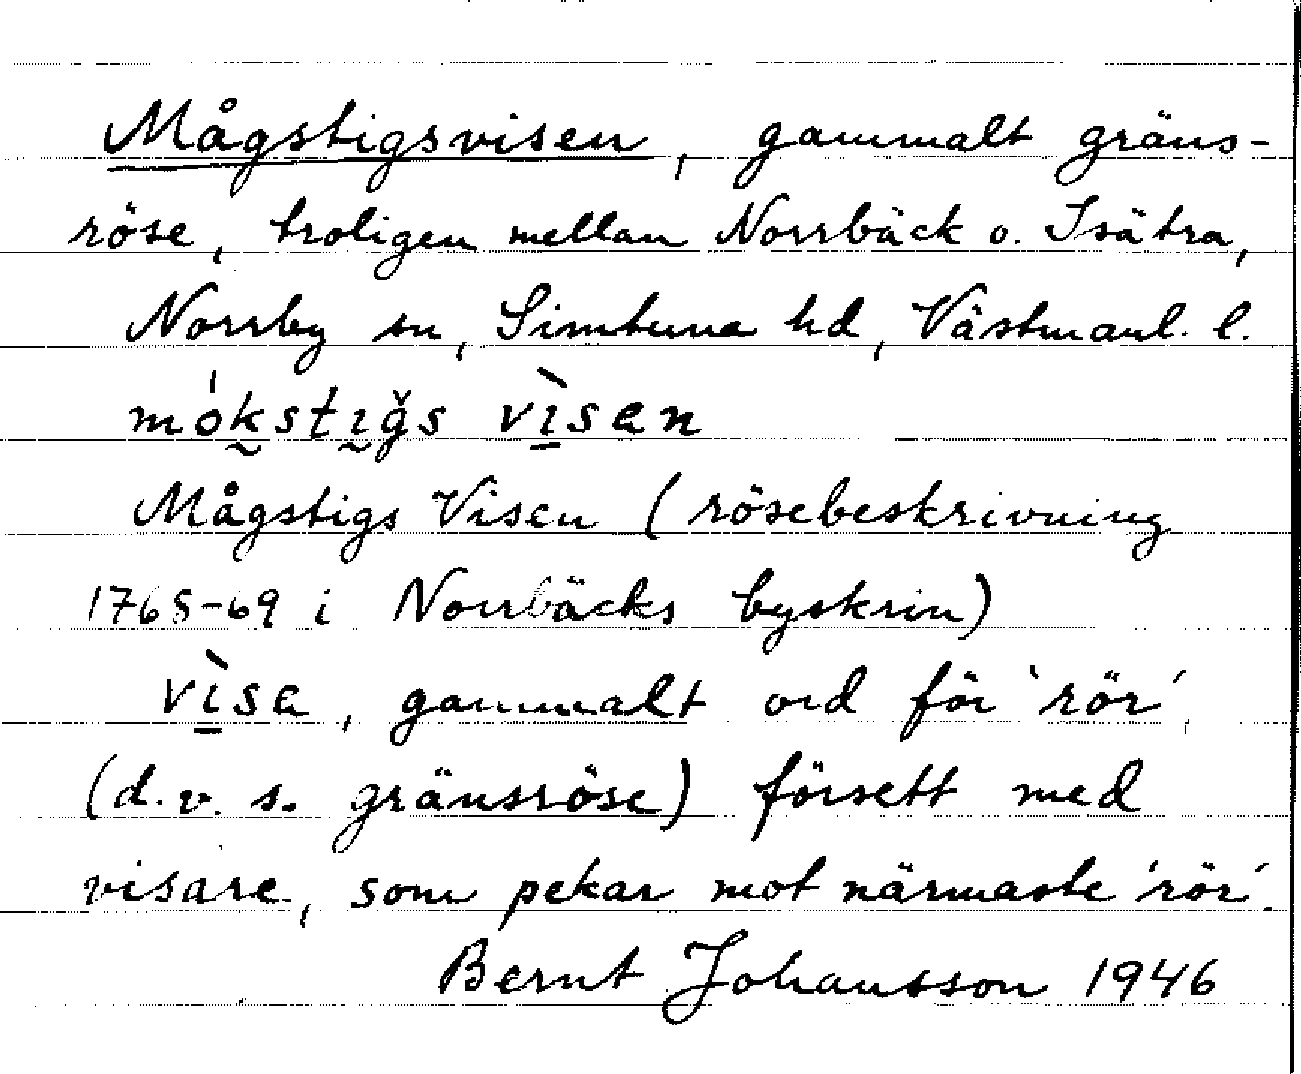 Mågstigsvisen, gammalt gräns-
röse, troligen mellan Norrbäck o. Isätra,
Norrby sn, Simtuna hd, Västmanl. l.
mókstıǧs vìsan
Mågstigs Visen (rösebeskrivning
1765-69 i Norrbäcks byskrin)
vìsa, gammalt ord för 'rör',
(d.v.s. gränsröse) försett med
visare, som pekar mot närmaste 'rör'.
Bernt Johansson 1946